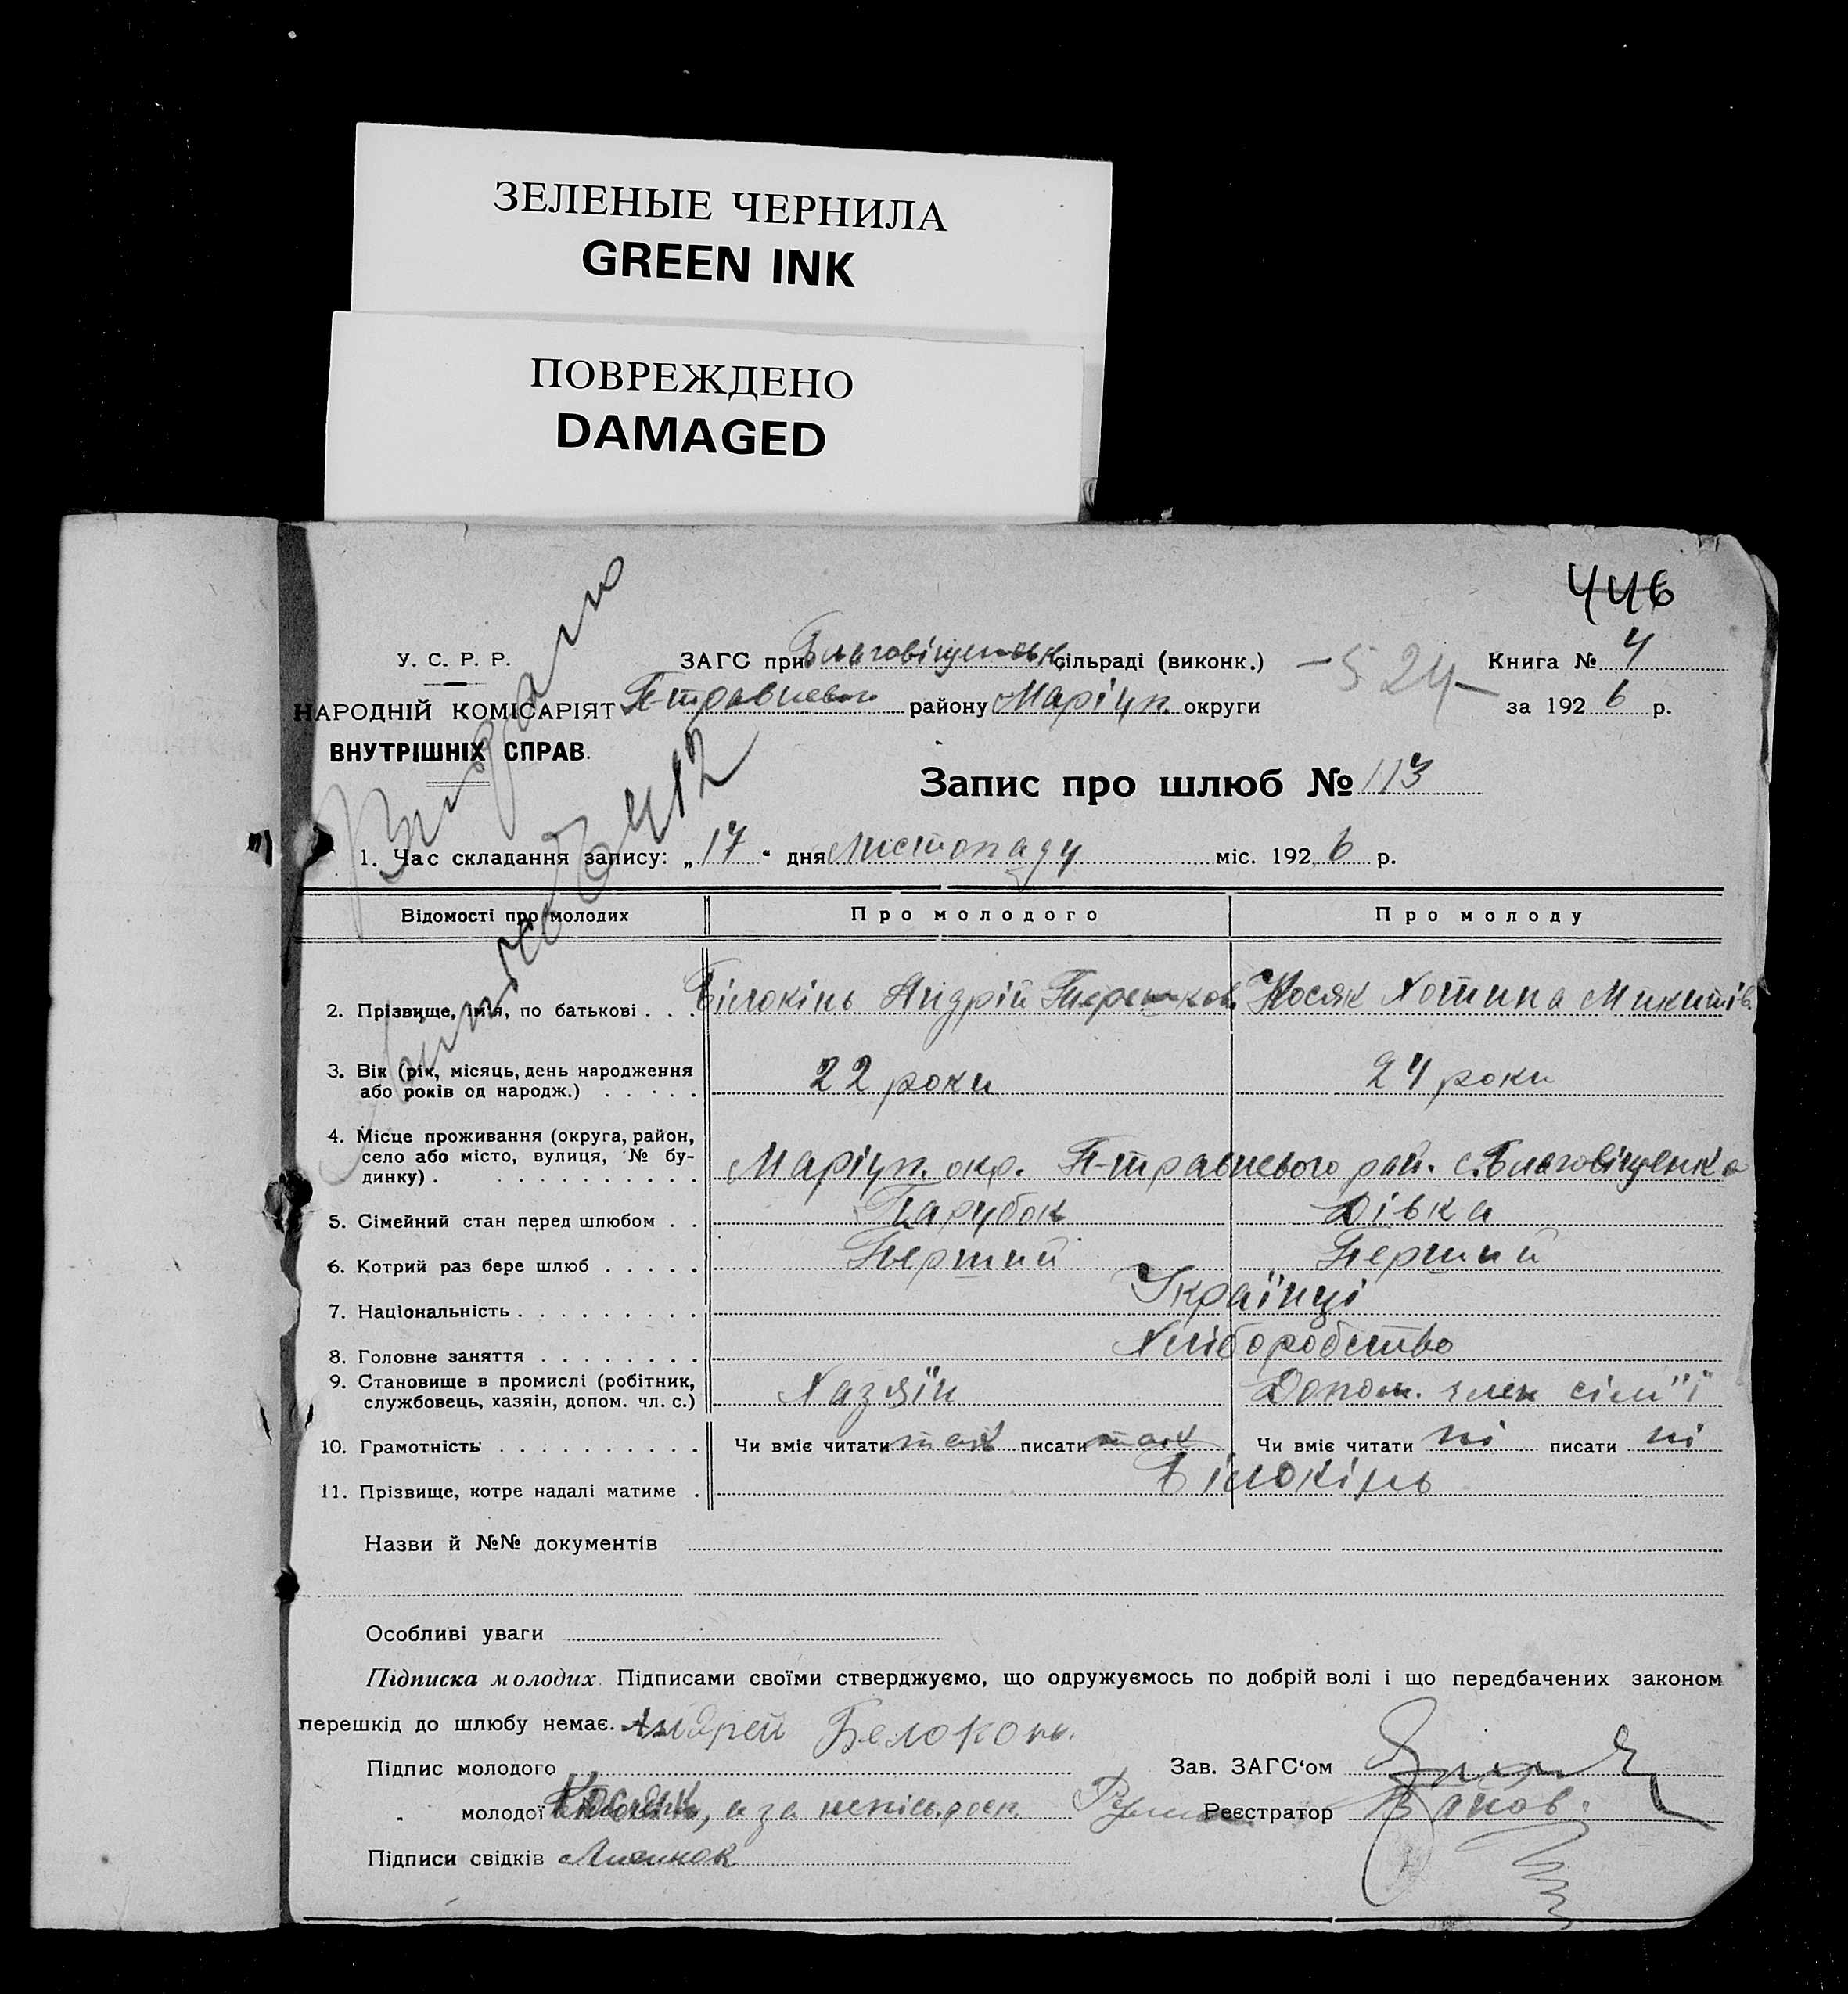 ЗЕЛЕНЫЕ ЧЕРНИЛА
GREEN INK
ПОВРЕЖДЕНО
DAMAGED
446
У. С. Р. Р.
НАРОДНІЙ КОМІСАРІЯТ
ВНУТРІШНІХ СПРАВ.
ЗАГС при Благовіщенськ. сільраді (виконк.)
П-травневого району Маріуп. округи
– 524 –
Книга № 4
за 1926 р.
Видано
6412
Запис про шлюб № 113
1. Час складання запису: „17“ дня Листопаду міс. 1926 р.
Відомості про молодих Про молодого Про молоду
2. Прізвище, ім'я, по батькові . . . Білокінь Андрій Терешков. Косяк Хотина Микитів.
3. Вік (рік, місяць, день народження
або років од народж.) . . . . . 22 роки 24 роки
4. Місце проживання (округа, район,
село або місто, вулиця, № бу-
динку) . . . . . . . . . . . Маріуп. окр. П-травневого рай. с. Благовіщенка
5. Сімейний стан перед шлюбом . . Парубок Дівка
6. Котрий раз бере шлюб . . . . . Перший Перший
7. Національність . . . . . . . . . Українці
8. Головне заняття . . . . . . . . Хліборобство
9. Становище в промислі (робітник,
службовець, хазяін, допом. чл. с.) Хазяїн Допом. член сім"ї
10. Грамотність . . . . . . . . . . Чи вміє читати так писати так Чи вміє читати ні писати ні
11. Прізвище, котре надалі матиме . Білокінь
Назви й №№ документів
Особливі уваги
Підписка молодих. Підписами своїми стверджуємо, що одружуємось по добрій волі і що передбачених законом
перешкід до шлюбу немає. Андрей Белоконь.
Підпис молодого
Зав. ЗАГС'ом
„ молодої Косяк, а за непісь. росп.
Реєстратор
Підписи свідків